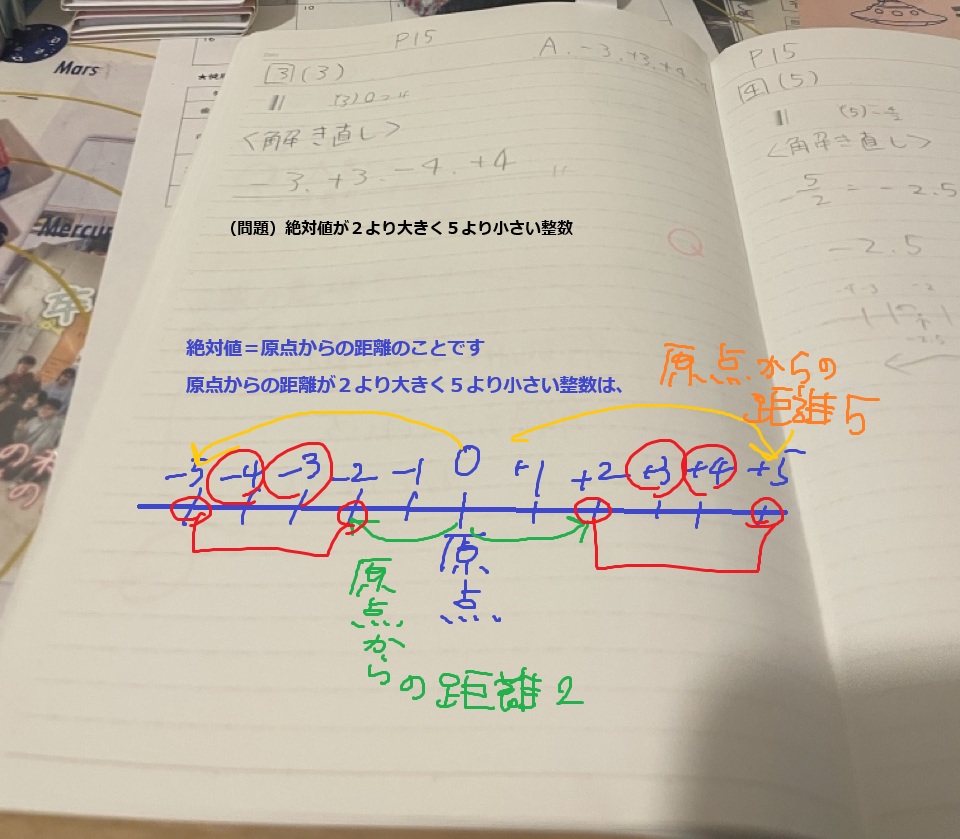 Mars
Mercur
P15
3 (3)
<解き直し>
-3. +3. -4. +4
A. -3. +3. +4
(問題)絶対値が2より大きく5より小さい整数
絶対値=原点からの距離のことです
原点からの距離が2より大きく5より小さい整数は、
原点からの
距離5
-5 -4 -3 -2 -1 0 +1 +2 +3 +4 +5
原点
原点からの距離2
P15
4 (5)
<解き直し>
-5/2 = -2.5
-2.5